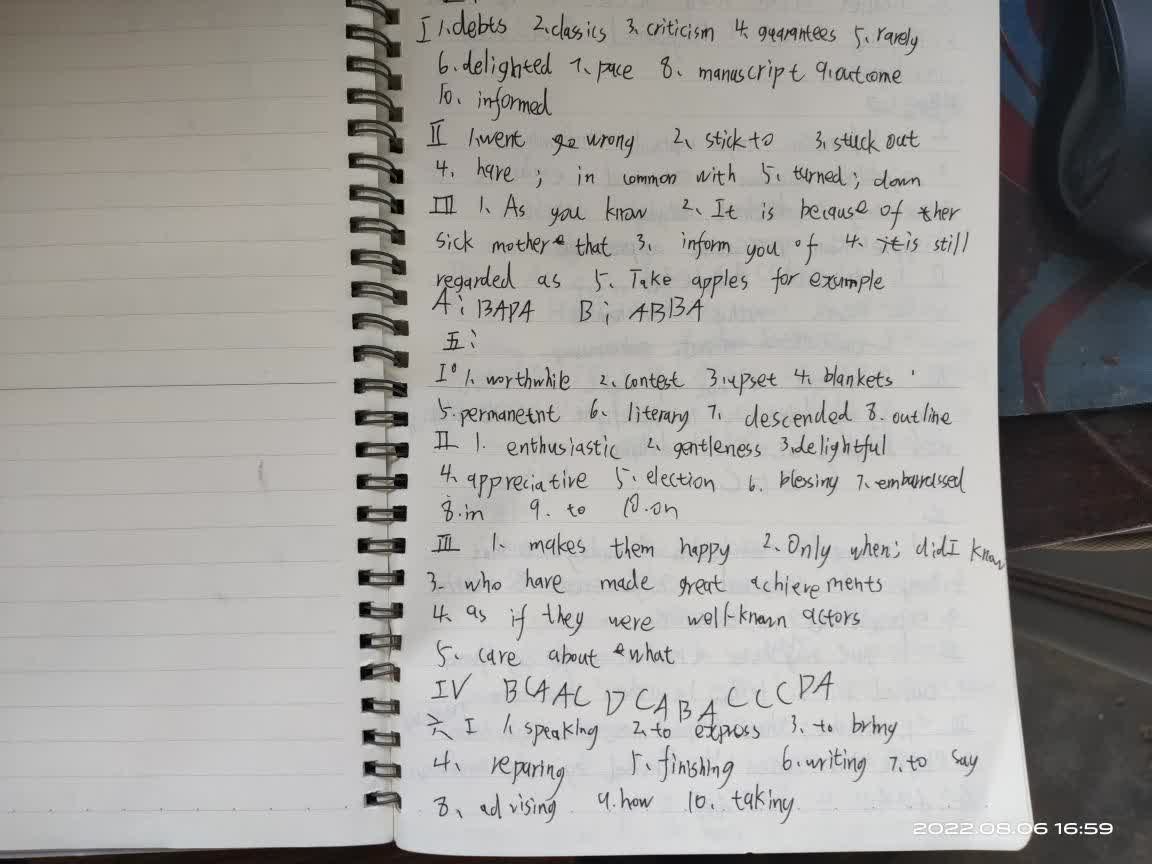 I 1、debts 2、classics 3、criticism 4、guarantees 5、rarely
6、delighted 7、pace 8、manuscript 9、outcome
10、informed
II 1、went go wrong 2、stick to 3、stuck out
4、have ; in common with 5、turned ; down
III 1、As you know 2、It is because of ther
sick mother that 3、inform you of 4、it is still
regarded as 5、Take apples for example
A: BADA B: ABBA
五:
I 1、worthwhile 2、contest 3、upset 4、blankets
5、permanetnt 6、literary 7、descended 8、outline
II 1、enthusiastic 2、gentleness 3、delightful
4、appreciative 5、election 6、blessing 7、embarrassed
8、in 9、to 10、on
III 1、makes them happy 2、Only when; did I know
3、who have made great achievements
4、as if they were well-known actors
5、care about what
IV BCAAC DCABA CCCDA
六 I 1、speaking 2、to express 3、to bring
4、reparing 5、finishing 6、writing 7、to say
8、advising 9、how 10、taking
2022.08.06 16:59